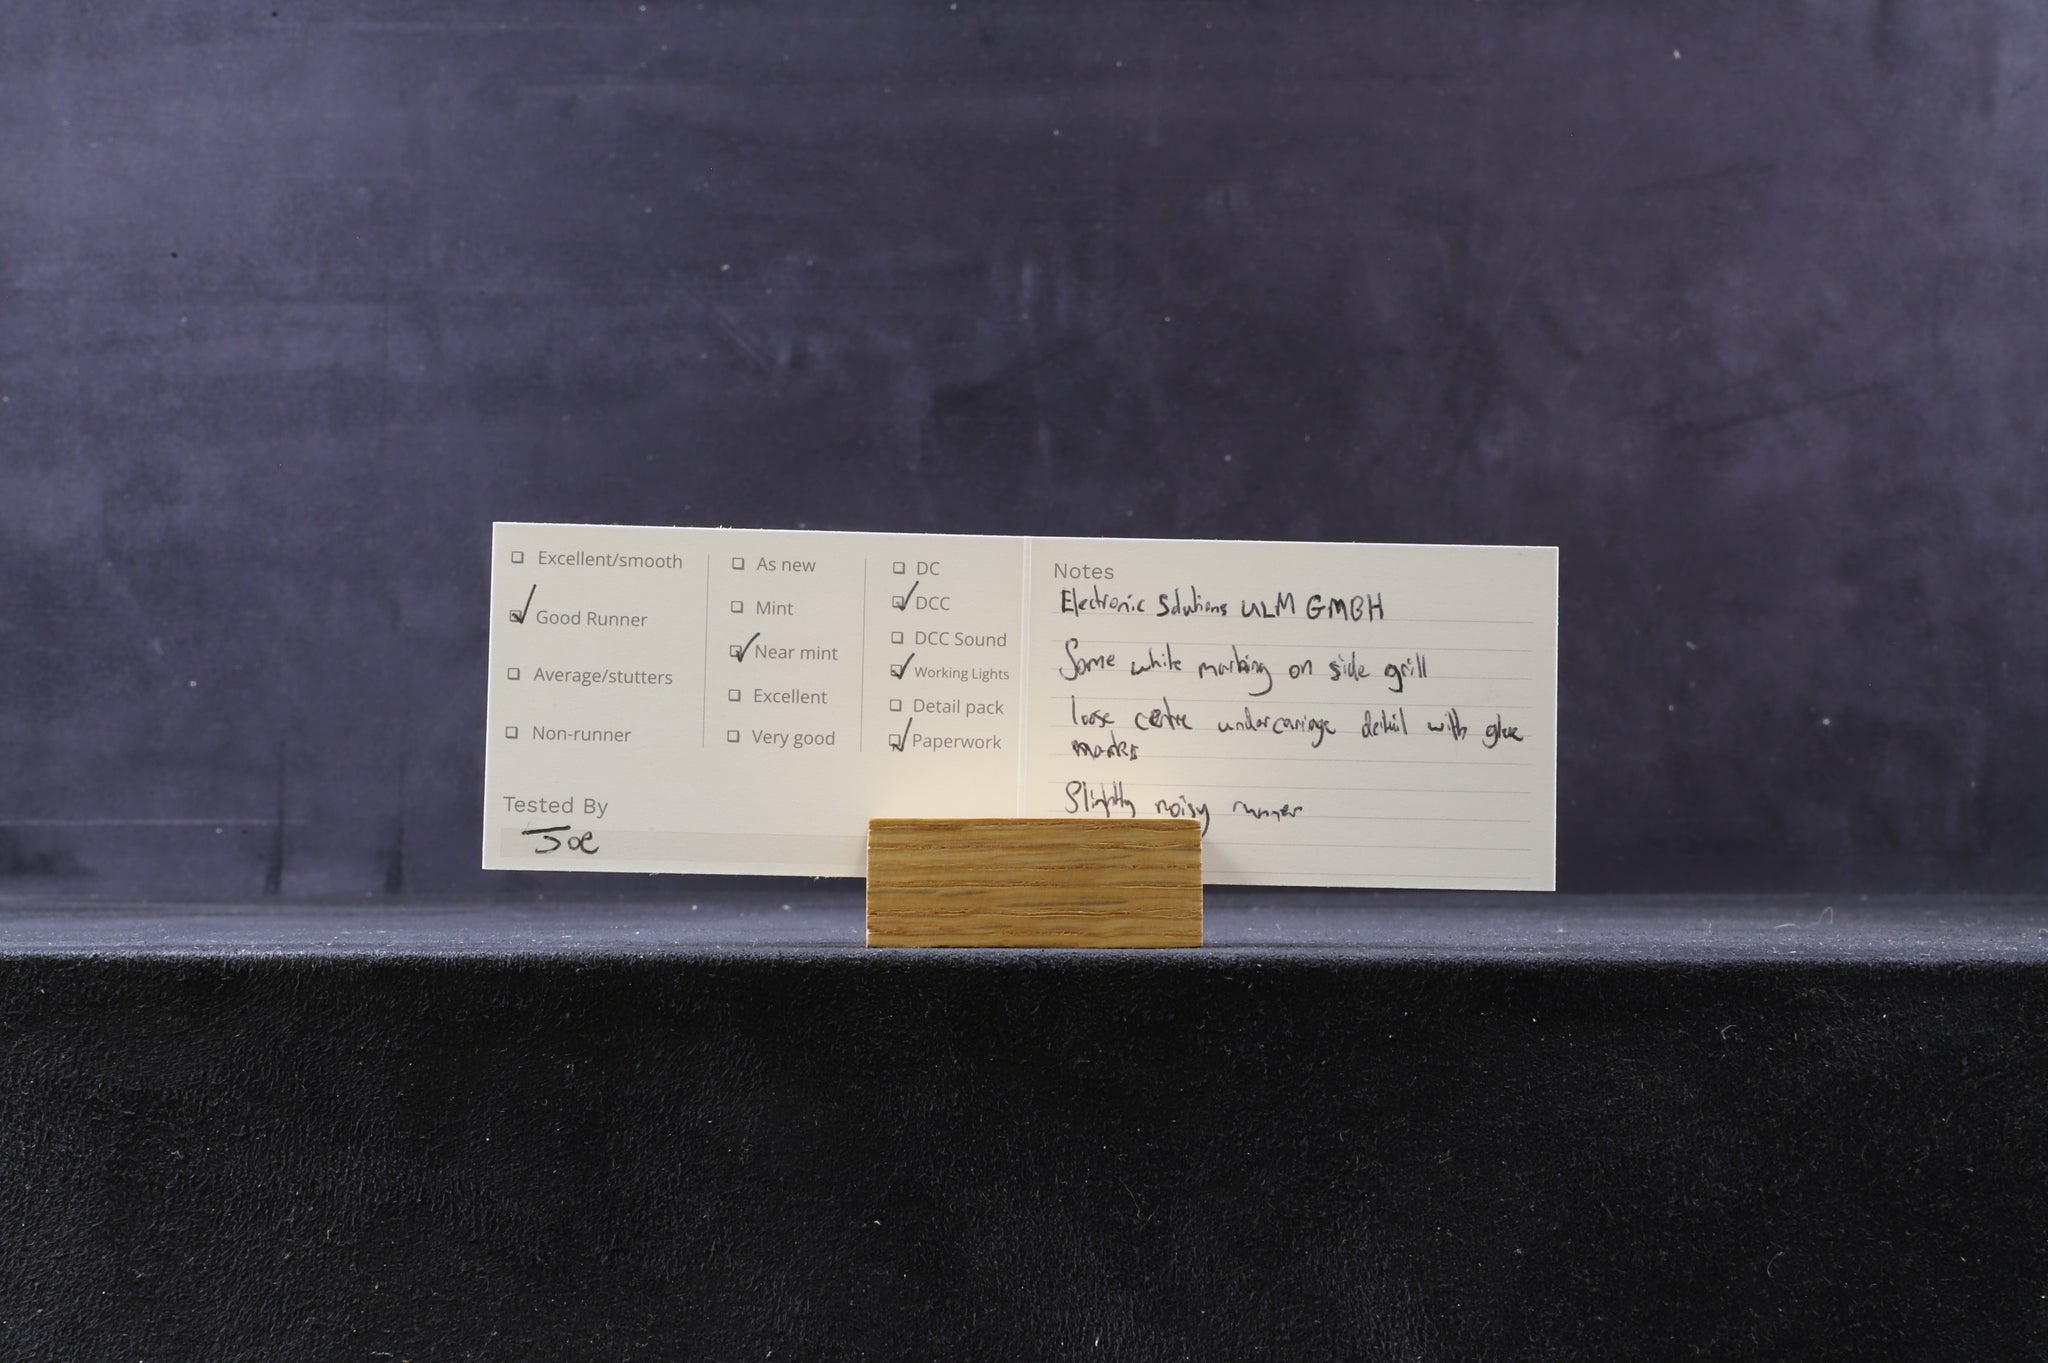 Excellent/smooth
Good Runner
Average/stutters
Non-runner
Tested By
Joe
As new
Mint
Near mint
Excellent
Very good
DC
DCC
DCC Sound
Working Lights
Detail pack
Paperwork
Notes
Electronic Solutions ULM GMBH
Some white marking on side grill
loose centre undercarriage detail with glue
marks
Slightly noisy runner